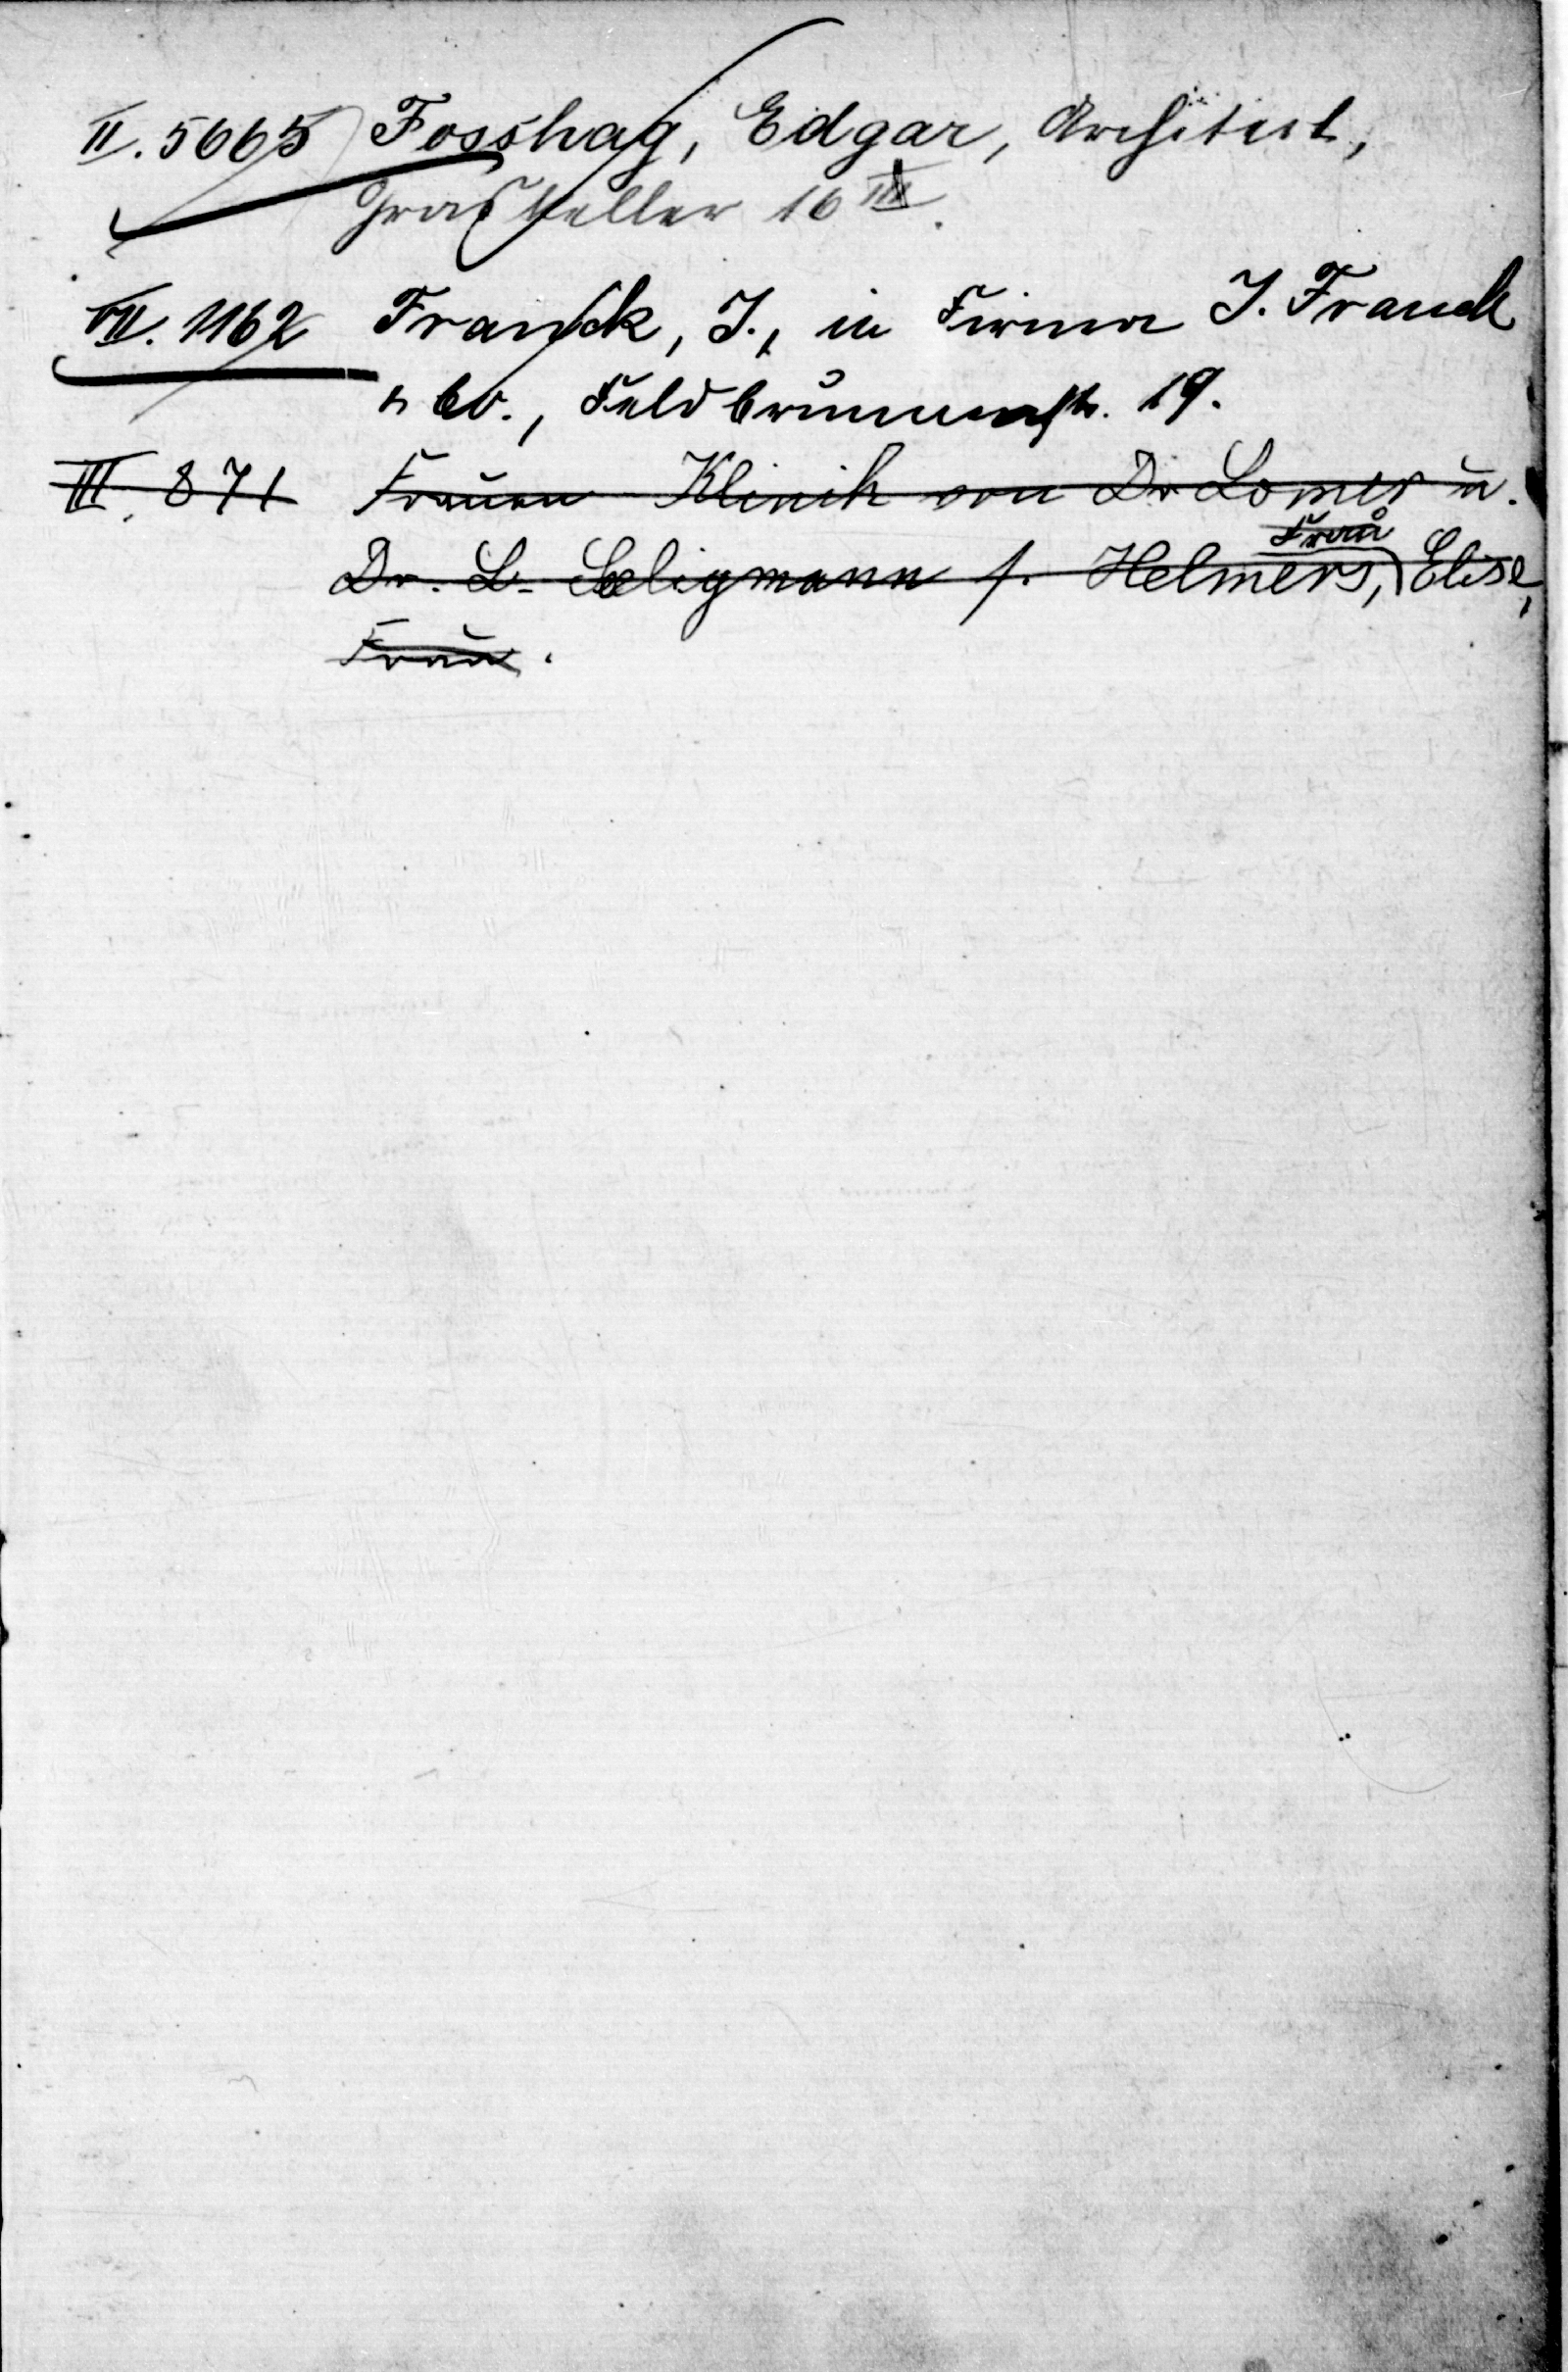 II. 5665 Fosshag, Edgar, Architect,
Graskeller 16 III.
VII. 1162 Franck, J., in Firma J. Franck
& Co., Feldbrunnenstr. 19.
III. 871 Frauen Klinik von Dr Lomer u.
Frau
Dr. L. Seligmann s. Helmers, Elise,
Frau.